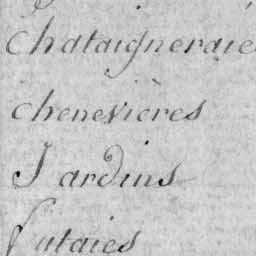 chataigneraie
chenevières
Jardins
futaies